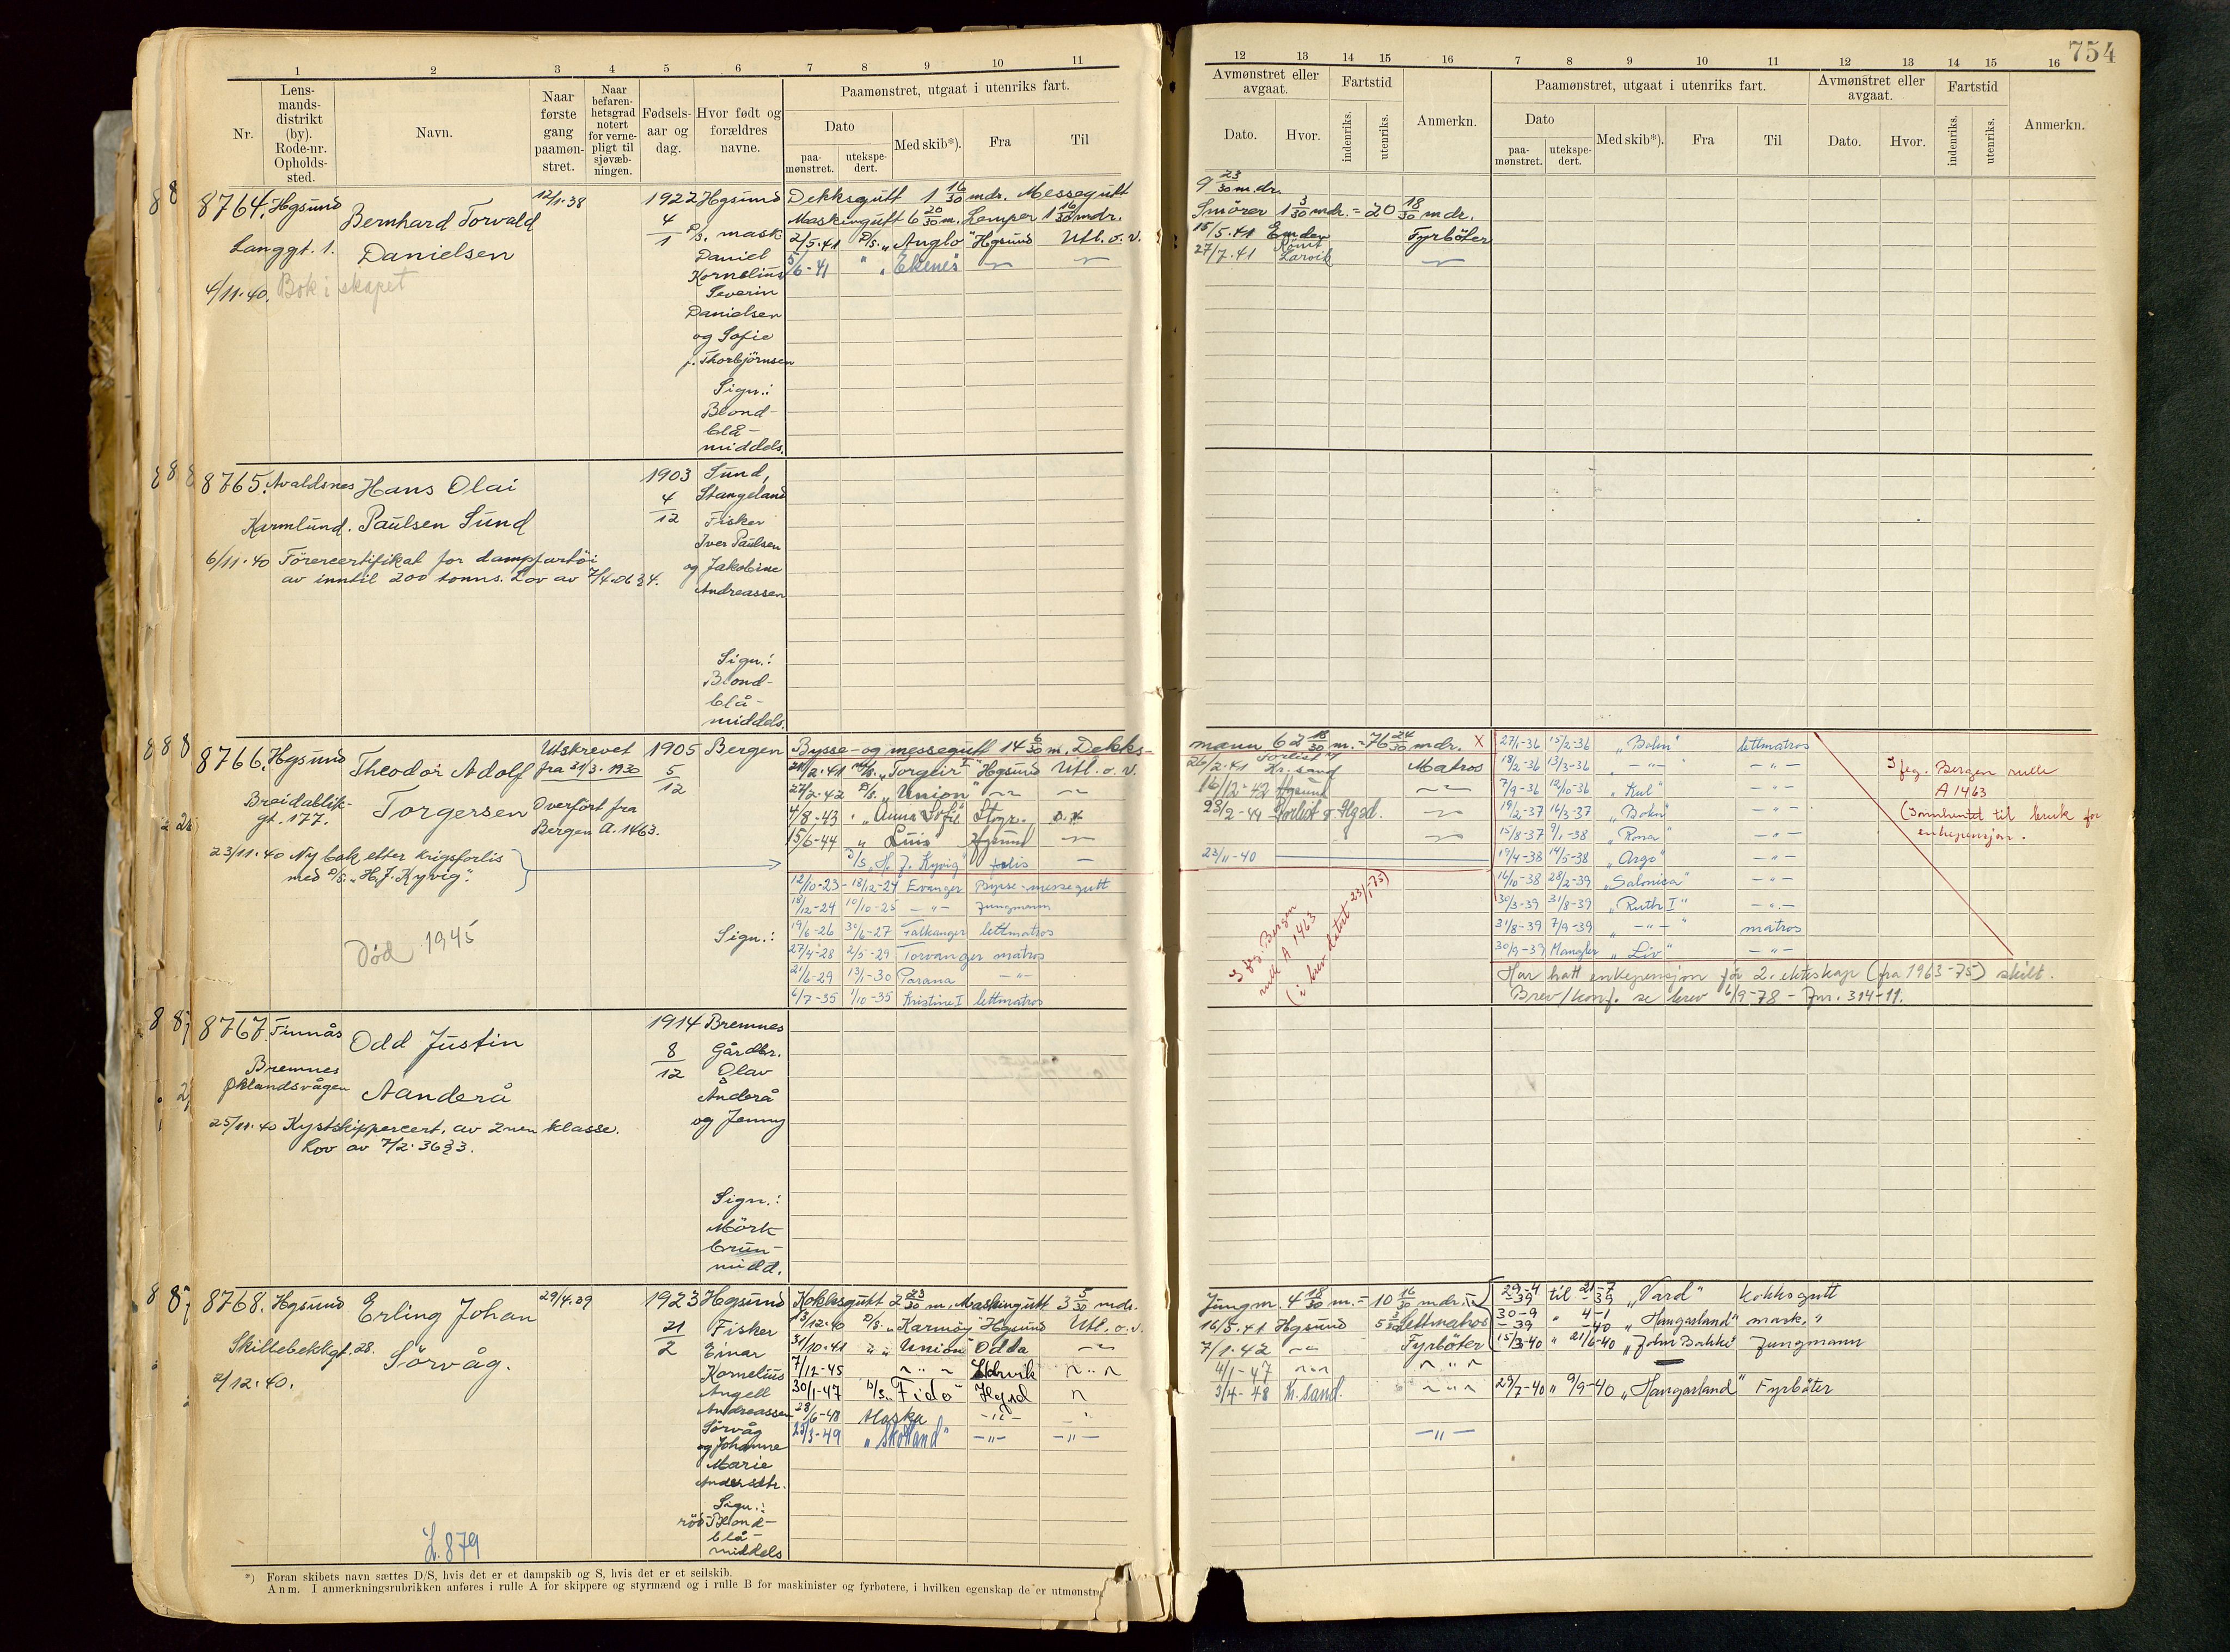 754
1 2 3 4 5 6 7 8 9 10 11
Nr.
Lens-
mands-
distrikt
(by).
Rode-nr.
Opholds-
sted.
Navn.
Naar
første
gang
paamøn-
stret.
Naar
befaren-
hetsgrad
notert
for verne-
pligt til
sjøvæb-
ningen.
Fødsels-
aar og
dag.
Hvor født og
forældres
navne.
Paamønstret, utgaat i utenriks fart.
Dato
paa-
mønstret.
utekspe-
dert.
Med skib*).
Fra
Til
12 13 14 15 16 7 8 9 10 11 12 13 14 15 16
Avmønstret eller
avgaat.
Dato.
Hvor.
Fartstid
indenriks.
utenriks.
Anmerkn.
Paamønstret, utgaat i utenriks fart.
Dato
paa-
mønstret.
utekspe-
dert.
Med skib*).
Fra
Til
Avmønstret eller
avgaat.
Dato.
Hvor.
Fartstid
indenriks.
utenriks.
Anmerkn.
8764. Hgsund
Langgt. 1.
4/11.40. Bok i skapet
Bernhard Torvald
Danielsen
12/1.38
1922
4/1
Hgsund
P/s. mask
Daniel
Kornelius
Severin
Danielsen
og Sofie
f. Thorbjörnsen
Sign.:
Blond-
blå-
middels.
Dekksgutt 1 16/30 mdr. Messegutt
9 23/30 m.dr.
Maskingutt 6 20/30 m. Lemper 1 16/30 mdr.
Smörer 1 3/30 mdr. = 20 18/30 mdr.
2/5.41 D/s. „Anglo" Hgsund Utl. o. v. 15/5.41 Emden Fyrböter
5/6-41 " „Ekenes" 27/7.41 Larvik
8765. Avaldsnes
Karmlund.
Hans Olai
Paulsen Sund
6/11.40 Förercertifikat for dampfartöi
av inntil 200 tonns. Lov av 7/4.06 § 4.
1903
4/12
Sund,
Stangeland
Fisker
Iver Paulsen
og Jakobine
Andreassen
Sign.:
Blond-
blå-
middels.
8766. Hgsund
Breidablik-
gt. 177.
Theodor Adolf
Torgersen
Utskrevet
fra 31/3.1930
Overfört fra
Bergen A. 1463.
23/11.40 Ny bok etter krigsforlis
med D/s. „H.J. Kyvig".
Död 1945
1905
5/12
Bergen
Sign.:
Bysse- og messegutt 14 6/30 m. Dekks-
mann 62 18/30 m. = 76 24/30 mdr. X
21/2.41 „Torgeir I" Hgsund Utl. o. v. 26/2.41 Forlist Kr. sand Matros
27/2.42 D/s. „Union" 16/12-42 Hgsund
4/8-43 „Anna Sofie" 23/2-44 Forlist
15/6-44 „ Luis Hgsund
D/s „H. J. Kyvig" forlis 23/11-40
12/10-23 - 18/12-24 Evanger Bysse-messegutt
18/12-24 10/10-25 — " — Jungmann
19/6-26 30/6-27 Falkanger lettmatros
27/4-28 2/5-29 Torvanger matros
21/6-29 13/1-30 Parana — " —
6/7-35 1/10-35 Kristine I lettmatros
Bergen
rull A 1463
(i brev datert 23/1-75)
27/1-36 15/2-36 „Bokn" lettmatros
18/2-36 13/3-36 „ — " — — " —
7/9-36 12/10-36 „Kul" — " —
19/2-37 16/3-37 „Bokn" — " —
15/8-37 9/1-38 „Rona" — " —
19/4-38 14/5-38 „Argo" — " —
16/10-38 28/2-39 „Salonica" — " —
30/3-39 31/8-39 „Ruth I" — " —
31/8-39 7/9-39 „ — " — matros
30/9-39 Mangler „Liv" — " —
Bergen rulle
A 1463
(Innhentet til bruk for
enkepensjon.
Har hatt enkepensjon for 2. ekteskap (fra 1963-75) skilt.
Brev/konf. se brev 6/9-78 - Jnr. 314-11.
8767. Finnås
Bremnes
Øklandsvågen
Odd Justin
Aanderå
25/11.40 Kystskippercert. av 2nen klasse.
Lov av 7/2.36 § 3.
1914
8/12
Bremnes
Gårdbr.
Olav
Anderå
og Jenny
Sign.:
Mörk-
brun-
midd.
8768. Hgsund
Skillebekkgt. 28.
2/12.40.
Erling Johan
Sörvåg.
L. 879
29/4.39
1923
21/2
Hgsund
Fisker
Einar
Kornelius
Angell
Andreassen
Sörvåg
og Johanne
Marie
Andersdtr.
Sign.:
röd-Blond-
blå-
middels
Kokksgutt 2 23/30 m, Maskingutt 3 5/30 mdr.
Jungm. 4 18/30 m. = 10 16/30 mdr.
13/12.40 D/s. „Karmöy" Hgsund Utl. o. v. 16/5.41 Hgsund Lettmatros
31/10.41 " „Union" Odda 7/1.42 Fyrböter
7/12-45 Larvik 4/1-47
30/1-47 D/s. „Fido" Hgsd 3/4-48 Kr. sand.
28/6-48 Alaska — " —
23/3-49 „Skotland" — " — — " — — " —
29-4-39 til 21-7-39 „Vard" Kokksgutt
30-9-39 " 4-1-40 „Hangarland" mask. "
15/3-40 " 21/6-40 „John Bakke" Jungmann
29/7-40 " 9/9-40 „Hangarland" Fyrböter
*) Foran skibets navn sættes D/S, hvis det er et dampskib og S, hvis det er et seilskib.
Anm. I anmerkningsrubrikken anføres i rulle A for skippere og styrmænd og i rulle B for maskinister og fyrbøtere, i hvilken egenskap de er utmønstre